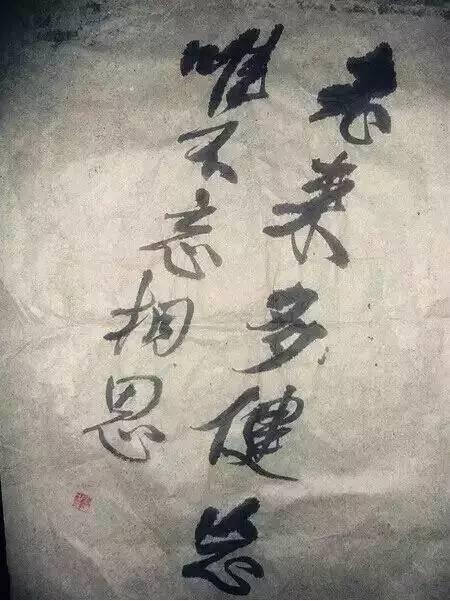 老英多健忘
唯不忘相思